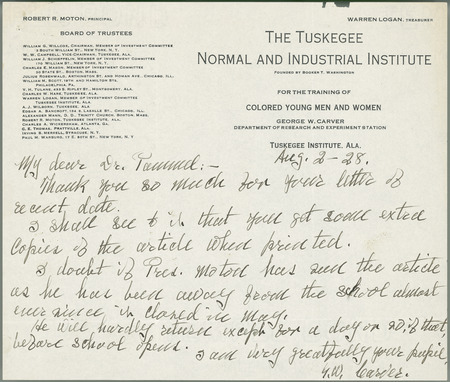 ROBERT R. MOTON, PRINCIPAL
WARREN LOGAN, TREASURER
BOARD OF TRUSTEES
WILLIAM G. WILLCOX, CHAIRMAN, MEMBER OF INVESTMENT COMMITTEE
3 SOUTH WILLIAM ST., NEW YORK, N. Y.
W. W. CAMPBELL, VICE-CHAIRMAN, MEMBER OF INVESTMENT COMMITTEE
TUSKEGEE, ALA.
WILLIAM J. SCHIEFFELIN, MEMBER OF INVESTMENT COMMITTEE
170 WILLIAM ST., NEW YORK, N. Y.
CHARLES E. MASON, MEMBER OF INVESTMENT COMMITTEE
30 STATE ST., BOSTON, MASS.
JULIUS ROSENWALD, ARTHINGTON ST. AND HOMAN AVE., CHICAGO, ILL.
WILLIAM M. SCOTT, 19TH AND HAMILTON STS.
PHILADELPHIA, PA.
V. H. TULANE, 453 S. RIPLEY ST., MONTGOMERY, ALA.
CHARLES W. HARE, TUSKEGEE, ALA.
WARREN LOGAN, MEMBER OF INVESTMENT COMMITTEE
TUSKEGEE INSTITUTE, ALA.
A. J. WILBORN, TUSKEGEE, ALA.
EDGAR A. BANCROFT, 134 S. LASALLE ST., CHICAGO, ILL.
ALEXANDER MANN, D. D., TRINITY CHURCH, BOSTON, MASS.
ROBERT R. MOTON, TUSKEGEE INSTITUTE, ALA.
CHARLES A. WICKERSHAM, ATLANTA, GA.
C. E. THOMAS, PRATTVILLE, ALA.
IRVING S. MERRELL, SYRACUSE, N. Y.
PAUL M. WARBURG, 17 E. 80TH ST., NEW YORK, N. Y.
THE TUSKEGEE
NORMAL AND INDUSTRIAL INSTITUTE
FOUNDED BY BOOKER T. WASHINGTON
FOR THE TRAINING OF
COLORED YOUNG MEN AND WOMEN
GEORGE W. CARVER
DEPARTMENT OF RESEARCH AND EXPERIMENT STATION
TUSKEGEE INSTITUTE, ALA.
Aug. 2-28.
My dear Dr. Pammel:-
Thank you so much for your letter of
recent date.
I shall see to it that you get some extra
copies of the article when printed.
I doubt if Pres. Moton has seen the article
as he has been away from the school almost
ever since it closed in May.
He will hardly return except for a day or so if that,
before school opens.
I am very greatfully your pupil,
G. W. Carver.